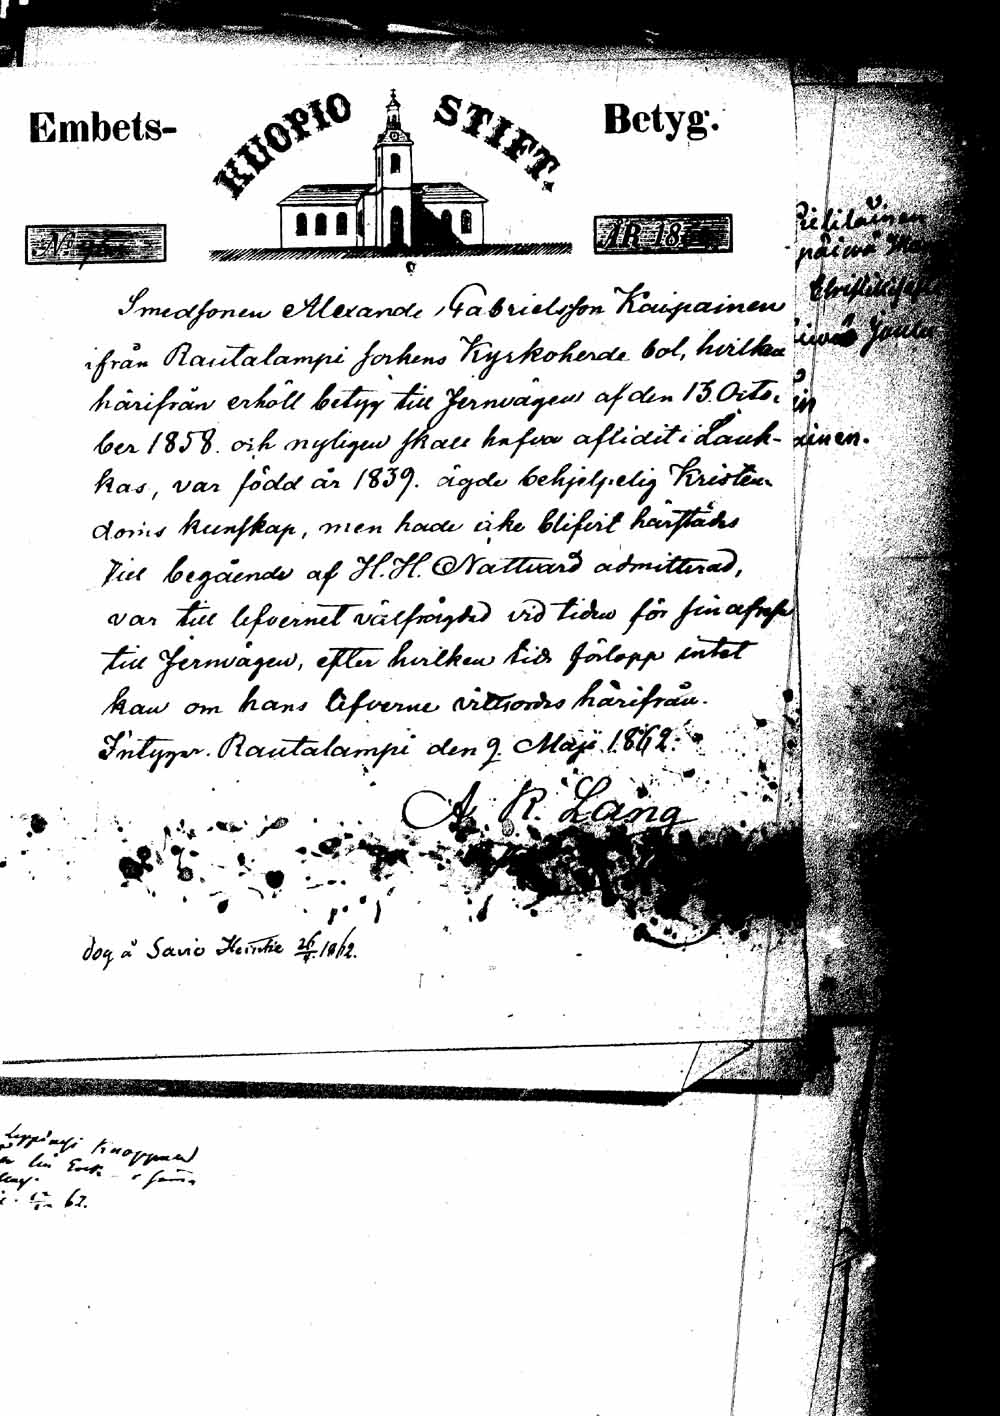 Embets- KUOPIO STIFT. Betyg.
No. ÅR 18
Smedsonen Alexander Gabrielsson Kaipainen
ifrån Rautalampi sockens Kyrkoherde bol, hvilken
härifrån erhöll betyg till Jernvägen af den 13. Octo-
ber 1858. och nyligen skall hafva aflidit i Lauk-
kas, var född år 1839. ägde behjelpelig Kristen-
doms kunskap, men hade icke blifvit härstädes
till begående af H.H. Nattvard admitterad,
var till lefvernet välfrägdad vid tiden för sin afresa
till Jernvägen, efter hvilken tids förlopp intet
kan om hans lefverne vittsordas härifrån.
Intygar. Rautalampi den 9 Maji 1862.
A. R. Lang
dog å Savio 26/4 1862.
päivä
Joulu
ainen.
Knoppnen
62.